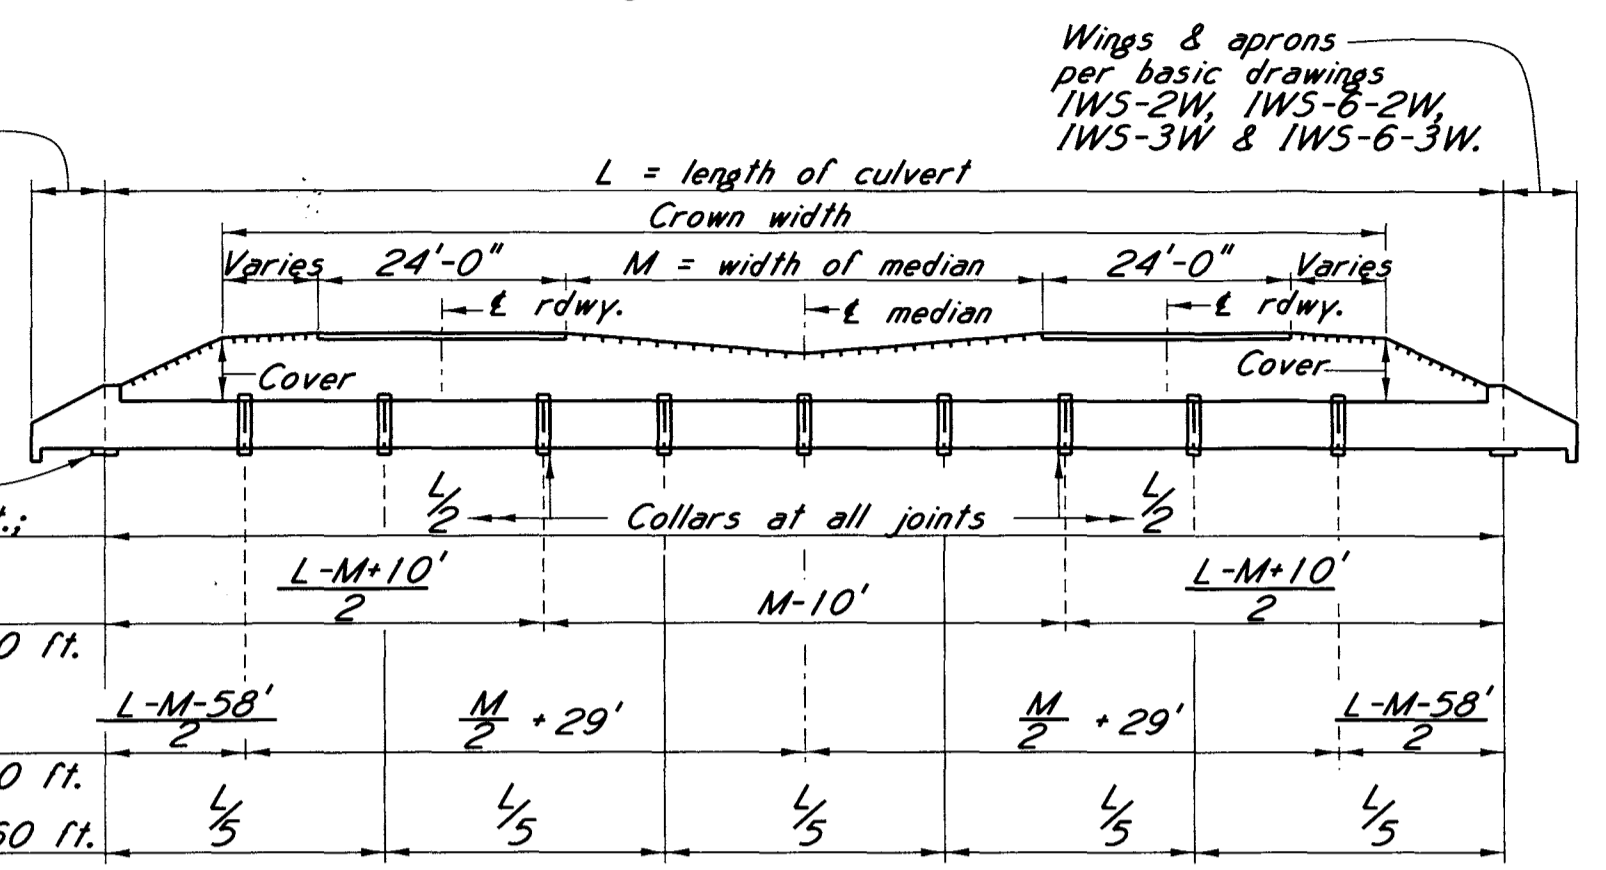 Wings & aprons
per basic drawings
IWS-2W, IWS-6-2W,
IWS-3W & IWS-6-3W.
L = length of culvert
Crown width
Varies 24'-0" M = width of median 24'-0" Varies
℄ rdwy. ℄ median ℄ rdwy.
Cover Cover
L/2 Collars at all joints L/2
L-M+10'/2 M-10' L-M+10'/2
0 ft.
L-M-58'/2 M/2 + 29' M/2 + 29' L-M-58'/2
0 ft.
L/5 L/5 L/5 L/5 L/5
60 ft.